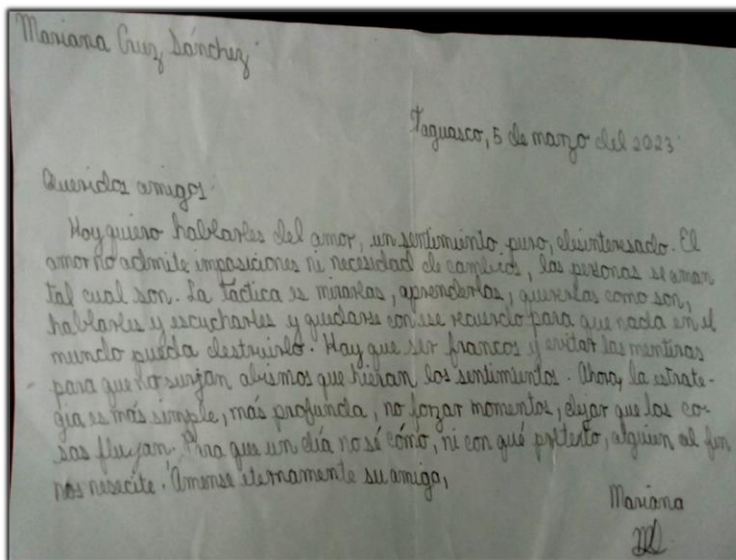 Mariana Cruz Sánchez
Taguasco, 5 de marzo del 2023
Queridos amigos:
Hoy quiero hablarles del amor, un sentimiento puro, desinteresado. El
amor no admite imposiciones ni necesidad de cambios, las personas se aman
tal cual son. La táctica es mirarlas, aprenderlas, quererlas como son,
hablarles y escucharles y quedarse con ese recuerdo para que nada en el
mundo pueda destruirlo. Hay que ser francos y evitar las mentiras
para que no surjan abismos que hieran los sentimientos. Ahora, la estrate-
gia es más simple, más profunda, no forzar momentos, dejar que las co-
sas fluyan. Para que un día no sé cómo, ni con qué pretexto, alguien al fin
nos nesecite. Amense eternamente su amiga,
Mariana